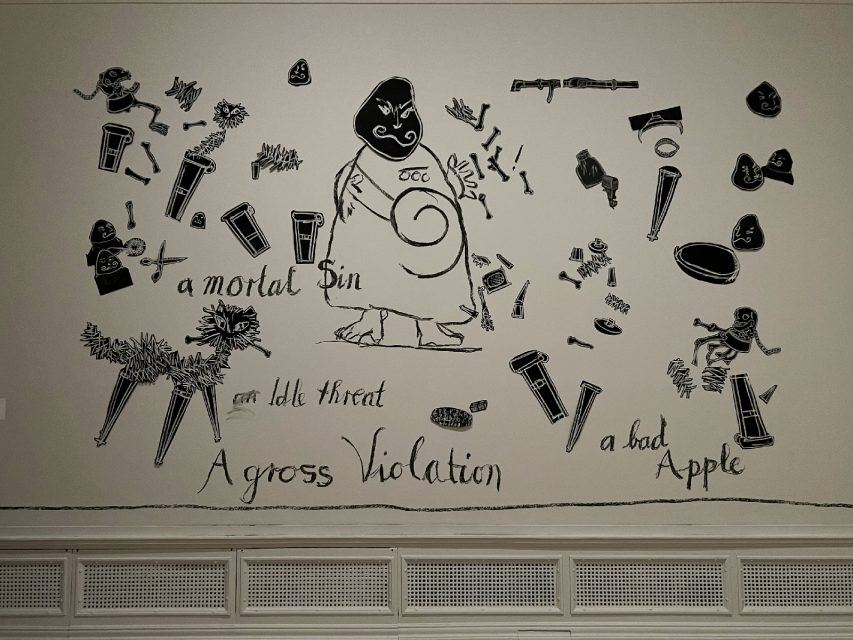 a mortal Sin
an Idle threat
A gross Violation
a bad
Apple